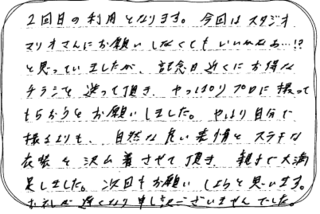 2回目の利用となります。今回はスタジオ
マリオさんにお願いしなくてもいいかなあ…!?
と思っていましたが、記念日近くにお得な
チラシを送って頂き、やっぱりプロに撮って
もらおうとお願いしました。やはり自分で
撮るよりも、自然な良い表情とステキな
衣装を沢山着させて頂き、親子で大満
足しました。次回もお願いしようと思います。
お礼が遅くなり申し訳ございませんでした。